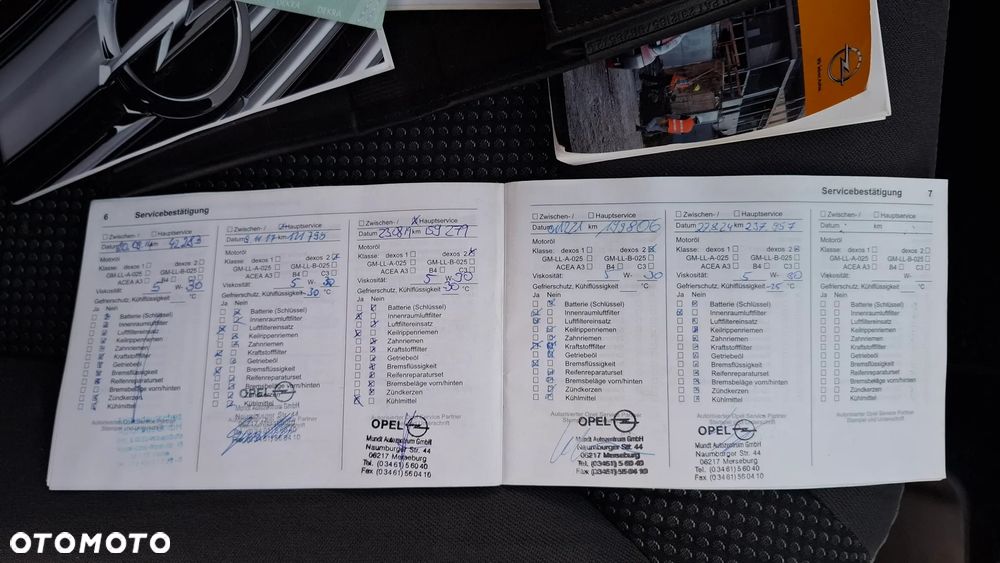 DEKRA
DEKRA
Wir leben Autos.
6 Servicebestätigung
Zwischen- /
Datum 42283 km
Motoröl
Klasse: dexos 1 dexos 2
GM-LL-A-025 GM-LL-B-025
ACEA A3 B4 C3
Viskosität: 5 W- 30
Gefrierschutz, Kühlflüssigkeit
Ja Nein
Batterie (Schlüssel)
Innenraumluftfilter
Luftfiltereinsatz
Keilrippenriemen
Zahnriemen
Kraftstofffilter
Getriebeöl
Bremsflüssigkeit
Reifenreparaturset
Bremsbeläge vorn/hinten
Zündkerzen
Kühlmittel
Zwischen- / Hauptservice
Datum 9.11.17 km 121795
Motoröl
dexos 1 dexos 2
GM-LL-A-025 GM-LL-B-025
ACEA A3 B4 C3
Viskosität: 5 W- 30
Gefrierschutz, Kühlflüssigkeit -30 °C
Ja Nein
Batterie (Schlüssel)
Innenraumluftfilter
Luftfiltereinsatz
Keilrippenriemen
Zahnriemen
Kraftstofffilter
Getriebeöl
Bremsflüssigkeit
Reifenreparaturset
Bremsbeläge vorn/hinten
Zündkerzen
Kühlmittel
OPEL
Mundt Autozentrum GmbH
Zwischen- / Hauptservice
Datum 23.08.19 km 159279
Motoröl
Klasse: dexos 1 dexos 2
GM-LL-A-025 GM-LL-B-025
ACEA A3 B4 C3
Viskosität: 5 W- 30
Gefrierschutz, Kühlflüssigkeit -30 °C
Ja Nein
Batterie (Schlüssel)
Innenraumluftfilter
Luftfiltereinsatz
Keilrippenriemen
Zahnriemen
Kraftstofffilter
Getriebeöl
Bremsflüssigkeit
Reifenreparaturset
Bremsbeläge vorn/hinten
Zündkerzen
Kühlmittel
Autorisierter Opel Service Partner
OPEL
Mundt Autozentrum GmbH
Naumburger Str. 44
06217 Merseburg
Tel. (0 34 61) 5 60 40
Fax (0 34 61) 56 04 10
Servicebestätigung 7
Zwischen- / Hauptservice
Datum km 199806
Motoröl
Klasse: dexos 1 dexos 2
GM-LL-A-025 GM-LL-B-025
ACEA A3 B4 C3
Viskosität: 5 W- 30
Gefrierschutz, Kühlflüssigkeit °C
Ja Nein
Batterie (Schlüssel)
Innenraumluftfilter
Luftfiltereinsatz
Keilrippenriemen
Zahnriemen
Kraftstofffilter
Getriebeöl
Bremsflüssigkeit
Reifenreparaturset
Bremsbeläge vorn/hinten
Zündkerzen
Kühlmittel
Autorisierter Opel Service Partner
OPEL
Mundt Autozentrum GmbH
Naumburger Str. 44
06217 Merseburg
Tel. (0 34 61) 5 60 40
Fax (0 34 61) 56 04 10
Zwischen- / Hauptservice
Datum 22.8.24 km 237957
Motoröl
Klasse: dexos 1 dexos 2
GM-LL-A-025 GM-LL-B-025
ACEA A3 B4 C3
Viskosität: 5 W- 30
Gefrierschutz, Kühlflüssigkeit -25 °C
Ja Nein
Batterie (Schlüssel)
Innenraumluftfilter
Luftfiltereinsatz
Keilrippenriemen
Zahnriemen
Kraftstofffilter
Getriebeöl
Bremsflüssigkeit
Reifenreparaturset
Bremsbeläge vorn/hinten
Zündkerzen
Kühlmittel
Autorisierter Opel Service Partner
OPEL
Mundt Autozentrum GmbH
Naumburger Str. 44
06217 Merseburg
Tel. (0 34 61) 5 60 40
Fax (0 34 61) 55 04 10
Zwischen- / Hauptservice
Datum km
Motoröl
Klasse: dexos 1 dexos 2
GM-LL-A-025 GM-LL-B-025
ACEA A3 B4 C3
Viskosität: W-
Gefrierschutz, Kühlflüssigkeit °C
Ja Nein
Batterie (Schlüssel)
Innenraumluftfilter
Luftfiltereinsatz
Keilrippenriemen
Zahnriemen
Kraftstofffilter
Getriebeöl
Bremsflüssigkeit
Reifenreparaturset
Bremsbeläge vorn/hinten
Zündkerzen
Kühlmittel
Autorisierter Opel Service Partner
Stempel und Unterschrift
OTOMOTO